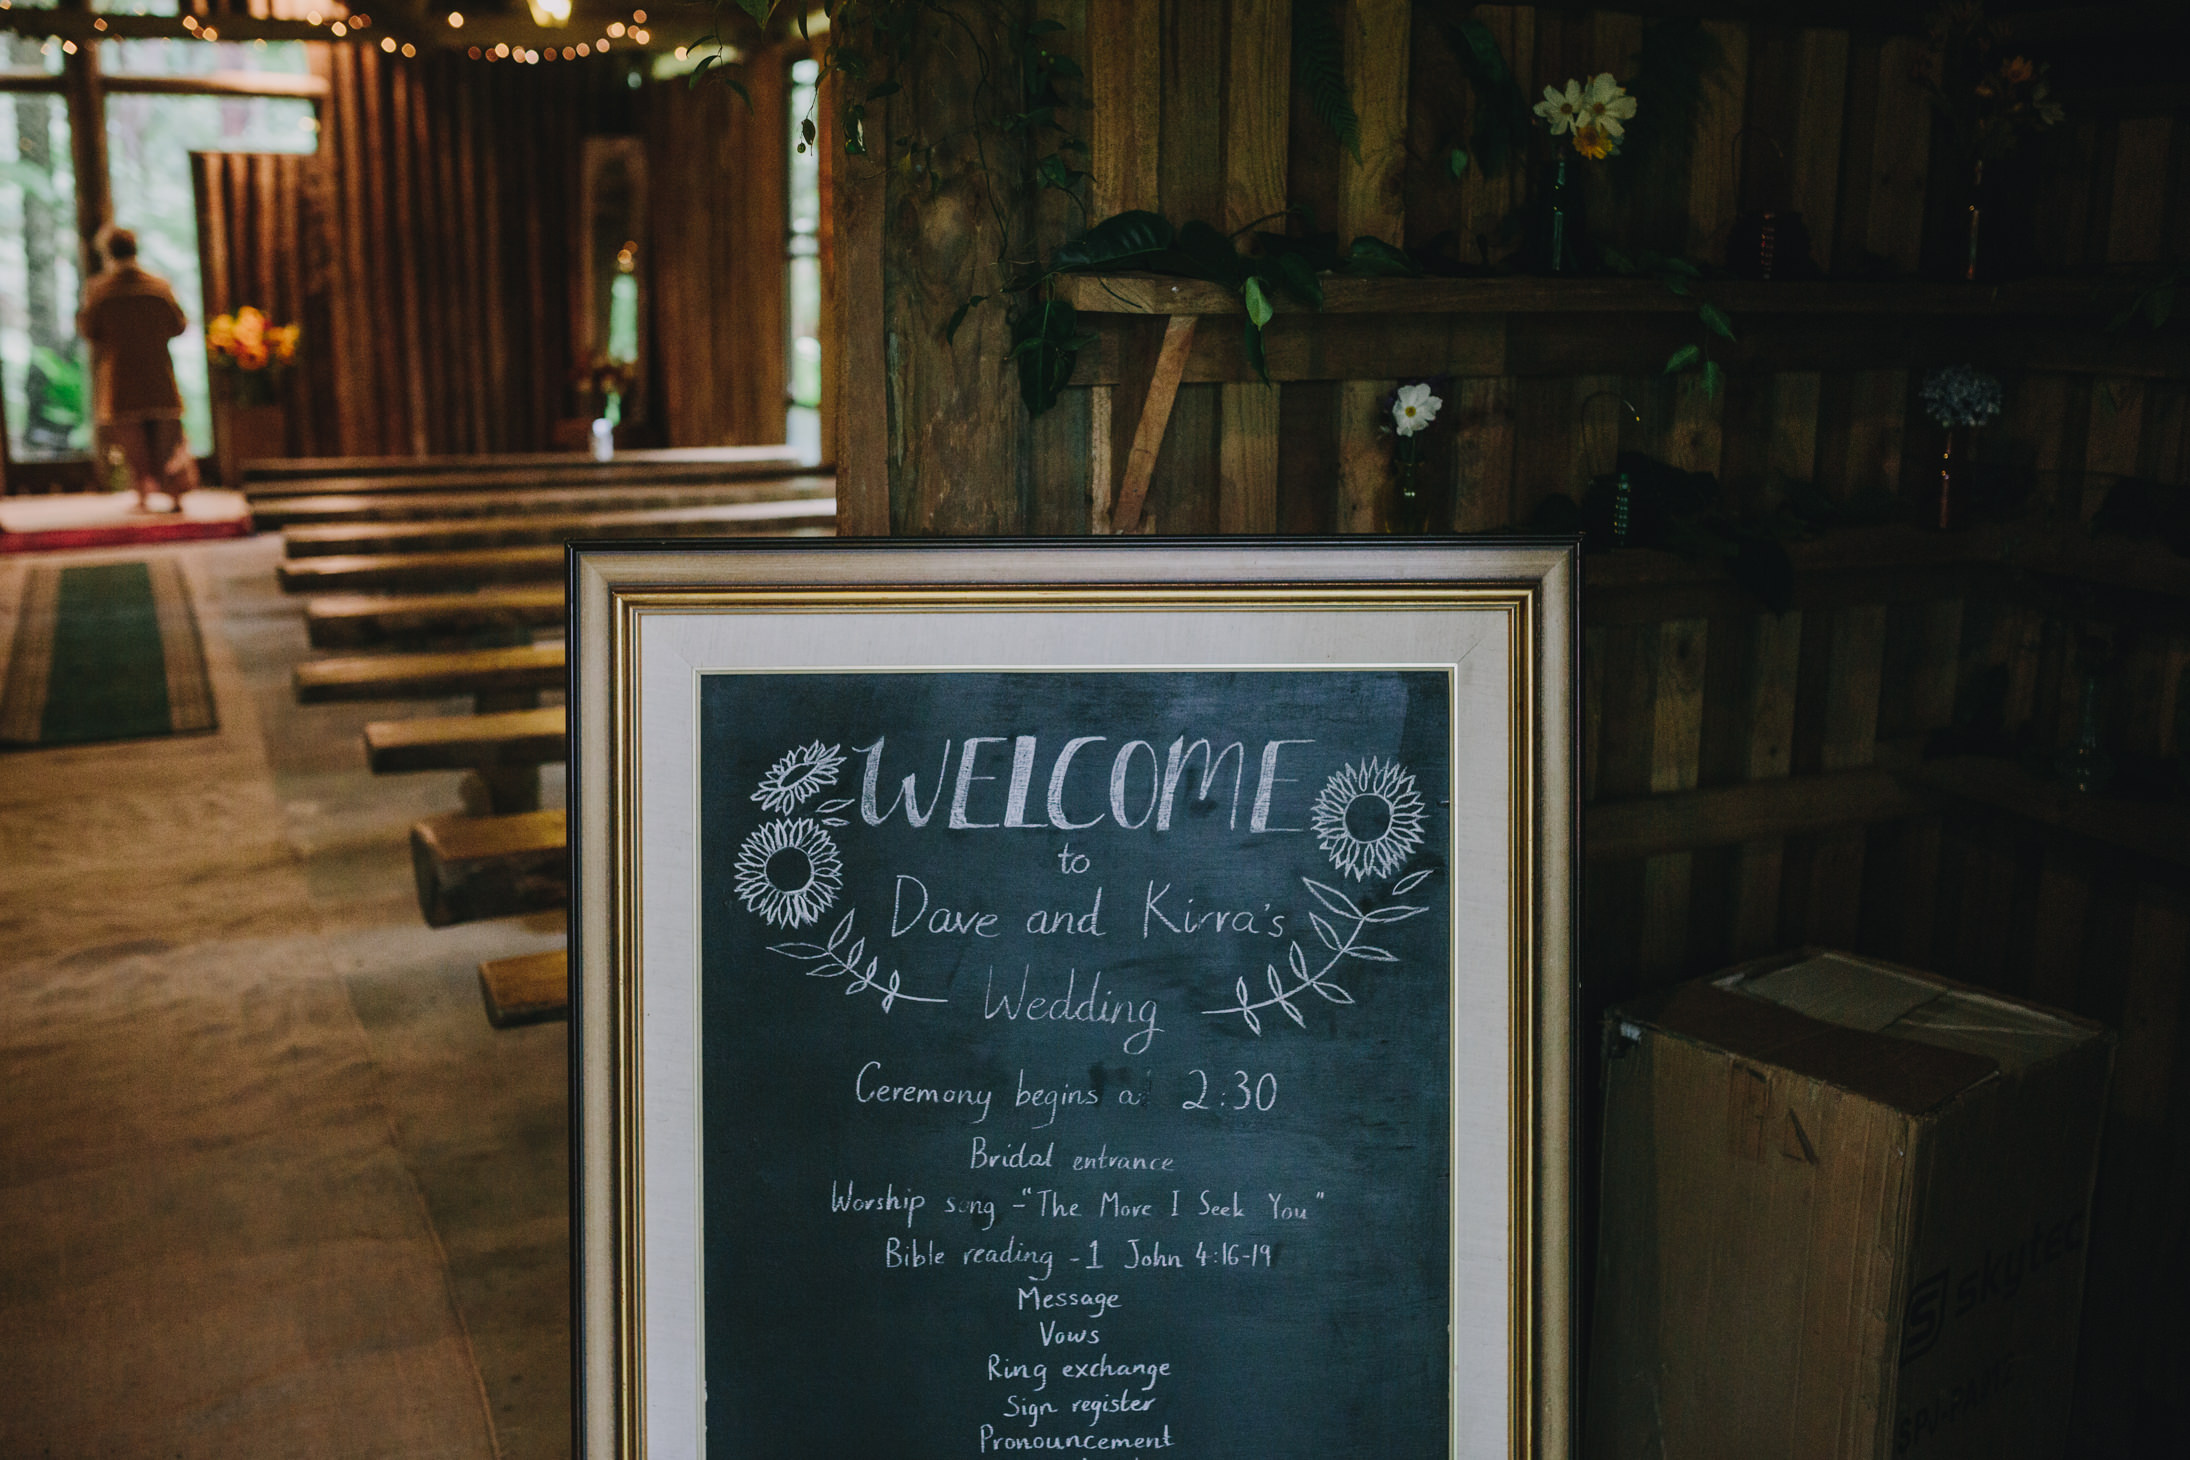 WELCOME
to
Dave and Kirra's
Wedding
Ceremony begins a 2:30
Bridal entrance
Worship song - "The More I Seek You"
Bible reading - 1 John 4:16-19
Message
Vows
Ring exchange
Sign register
Pronouncement
skytec